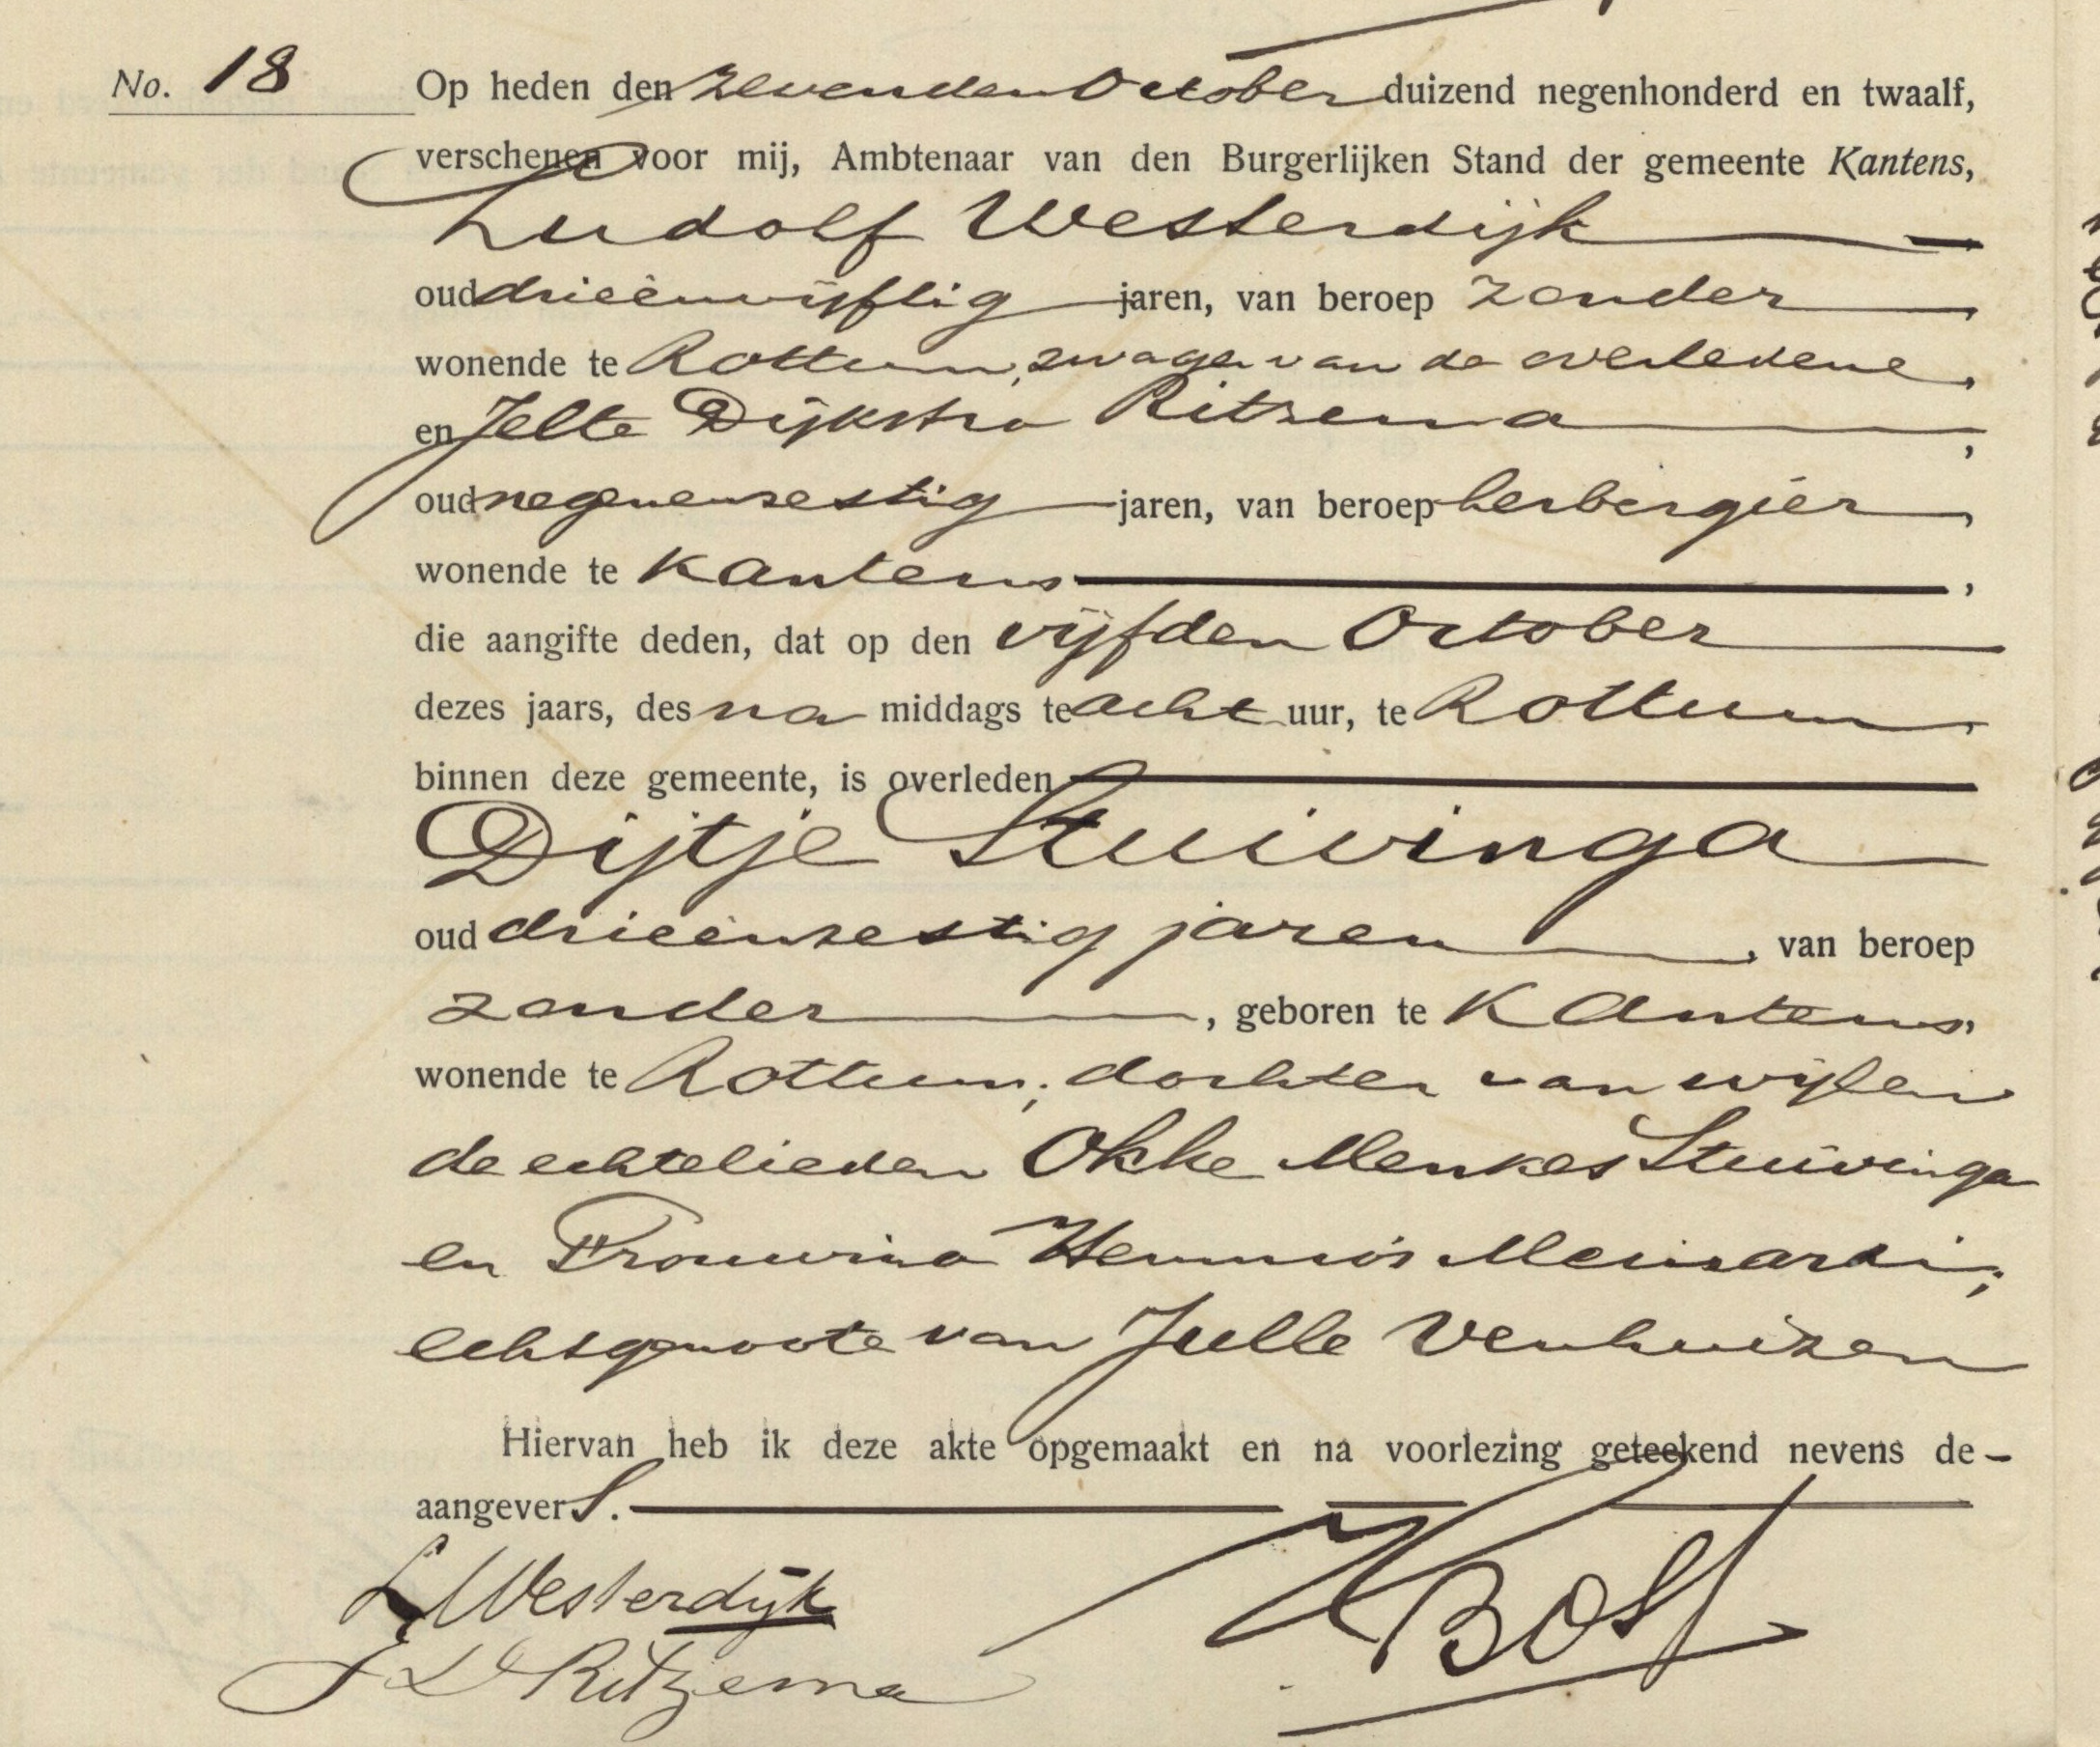 No. 18
Op heden den zevenden October duizend negenhonderd en twaalf,
verschenen voor mij, Ambtenaar van den Burgerlijken Stand der gemeente Kantens,
Ludolf Westerdijk
oud drieënvijftig jaren, van beroep zonder,
wonende te Rottum, zwager van de overledene,
en Jelte Dijkstra Ritzema,
oud negenenzestig jaren, van beroep herbergier,
wonende te Kantens,
die aangifte deden, dat op den vijfden October
dezes jaars, des na middags te acht uur, te Rottum,
binnen deze gemeente, is overleden
Dijtje Stuivinga
oud drieënzestig jaren, van beroep
zonder, geboren te Kantens,
wonende te Rottum; dochter van wijlen
de echtelieden Okke Menkes Stuivinga
en Frouwina Hemmes Meinardi;
echtgenoote van Julle Venhuizen
Hiervan heb ik deze akte opgemaakt en na voorlezing geteekend nevens de
aangevers.
L Westerdijk
J D Ritzema